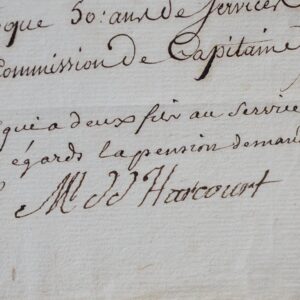 oque 50: ans de Services
Commission de Capitaine
qui a deux fils au Service
égards la pension deman
Ml d'Harcourt